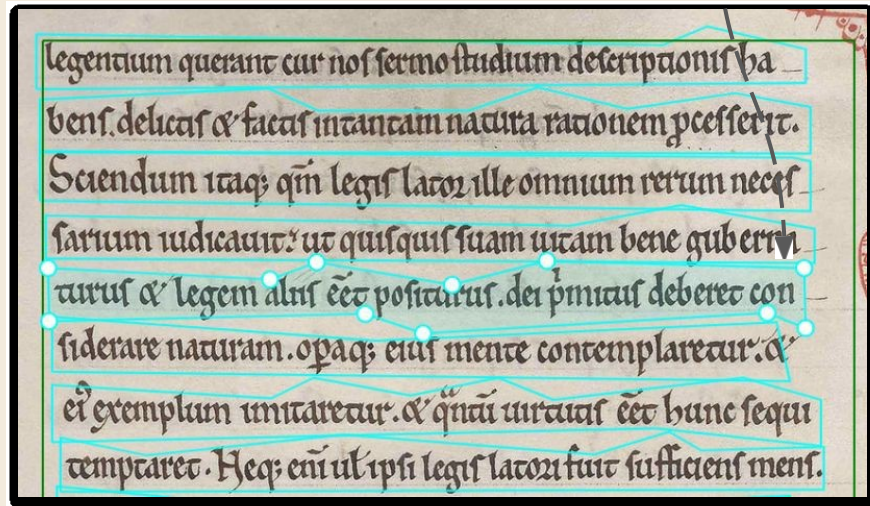 legentium querant cur nos sermo studium descriptionis ha
bens. delictis & factis intantam natura rationem ꝓcesserit.
Sciendum itaqꝫ qm̄ legis lator ille omnium rerum neces
sarium iudicauit: ut quisquis suam uitam bene guberna
turus & legem aliis eēt positurus. dei pͥmitus deberet con
siderare naturam. oꝑaqꝫ eius mente contemplaretur. &
ei᾽ exemplum imitaretur. & qͣntū uirtutis eēt hunc sequi
temptaret. Neqꝫ eni ul ipsi legis latori fuit sufficiens mens.